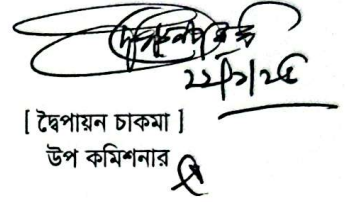 ২২/১/২৫
[ দ্বৈপায়ন চাকমা ]
উপ কমিশনার